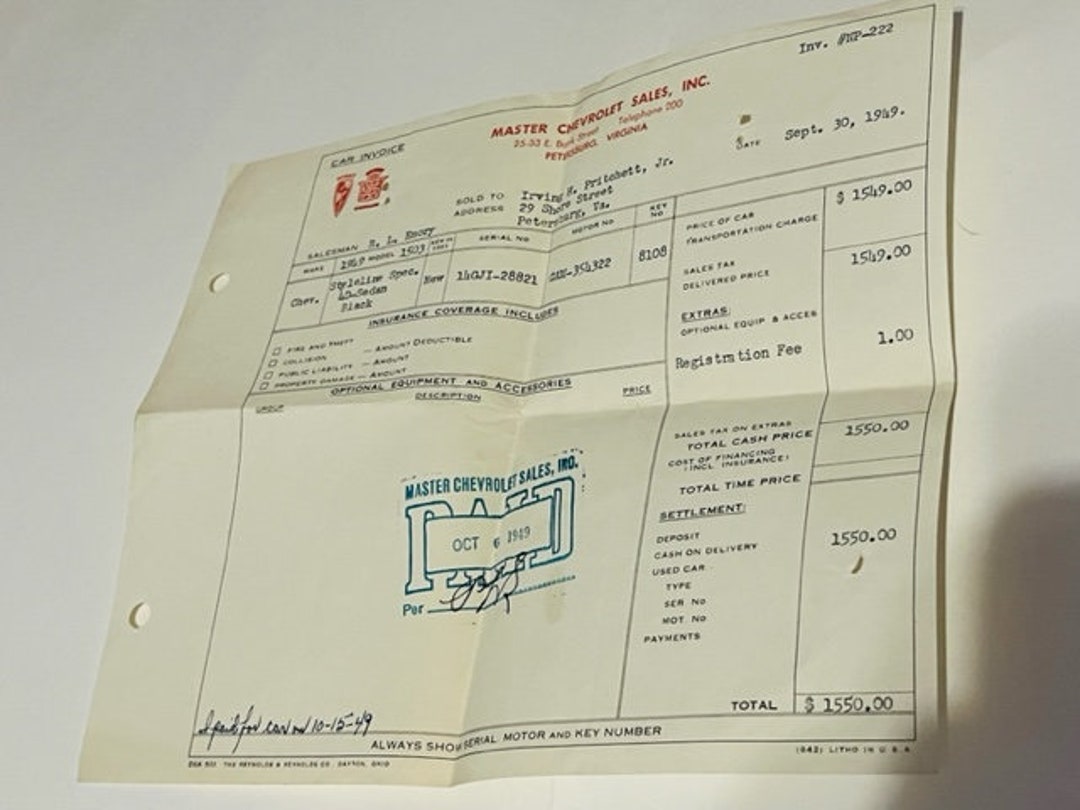 Inv. #NP-222
MASTER CHEVROLET SALES, INC.
25-33 E. Bank Street Telephone 200
PETERSBURG, VIRGINIA
CAR INVOICE
DATE Sept. 30, 1949.
SOLD TO Irving H. Pritchett, Jr.
ADDRESS 29 Shore Street
Petersburg, Va.
SALESMAN E. L. Emory
MAKE 1949 MODEL 1503 SERIAL NO MOTOR NO KEY NO
Chev. Styleline Spec. New 14GJI-28821 8108
4D-Sedan
Black
PRICE OF CAR $ 1549.00
TRANSPORTATION CHARGE
SALES TAX
DELIVERED PRICE 1549.00
EXTRAS:
OPTIONAL EQUIP & ACCES
Registration Fee 1.00
INSURANCE COVERAGE INCLUDES
FIRE AND THEFT
COLLISION — AMOUNT DEDUCTIBLE
PUBLIC LIABILITY — AMOUNT
PROPERTY DAMAGE — AMOUNT
OPTIONAL EQUIPMENT AND ACCESSORIES
GROUP DESCRIPTION PRICE
SALES TAX ON EXTRAS
TOTAL CASH PRICE 1550.00
COST OF FINANCING
(INCL INSURANCE)
TOTAL TIME PRICE
SETTLEMENT:
DEPOSIT 1550.00
CASH ON DELIVERY
USED CAR
TYPE
SER. No
MOT. No
PAYMENTS
MASTER CHEVROLET SALES, IRO.
PAID
OCT 6 1949
Per
TOTAL $ 1550.00
I paid for car on 10-15-49
ALWAYS SHOW SERIAL MOTOR AND KEY NUMBER
THE REYNOLDS & REYNOLDS CO., DAYTON, OHIO
(642) LITHO IN U.S.A.